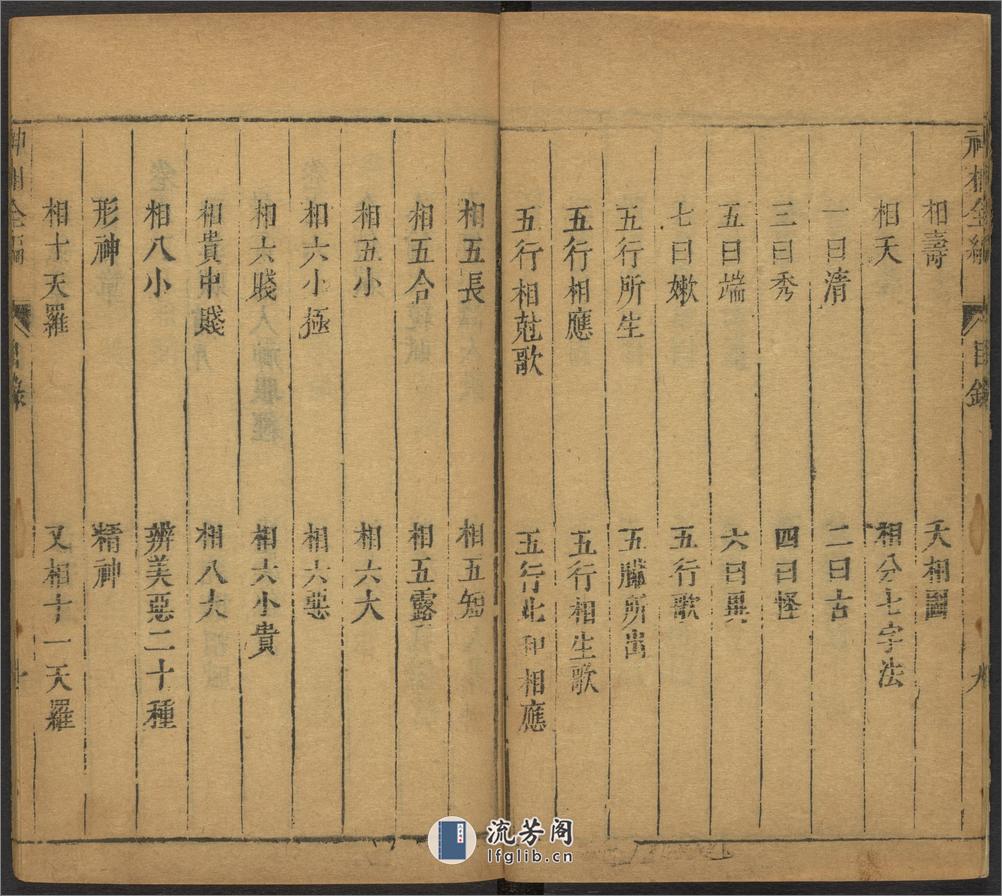 神相全編 目錄 九
相壽 夭相圖
相夭 相分七字法
一曰清 二曰古
三曰秀 四曰怪
五曰端 六曰異
七曰嫩 五行歌
五行所生 五臟所出
五行相應 五行相生歌
五行相尅歌 五行比和相應
相五長 相五短
相五合 相五露
相五小 相六大
相六小極 相六惡
相六賤 相六小貴
相貴中賤 相八大
相八小 辨美惡二十種
形神 精神
相十天羅 又相十一天羅
神相全編 目錄
流芳阁
lfglib.cn